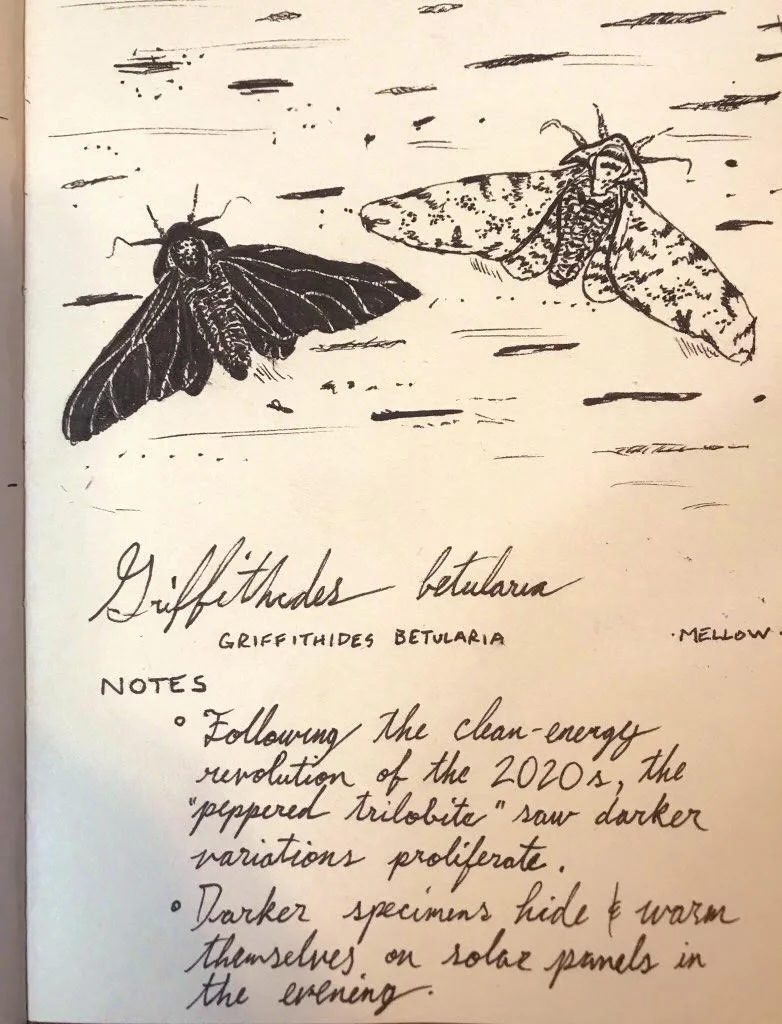 Griffithides betularia
GRIFFITHIDES BETULARIA
·MELLOW·
NOTES
° Following the clean-energy
revolution of the 2020s, the
"peppered trilobite" saw darker
variations proliferate.
° Darker specimens hide & warm
themselves on solar panels in
the evening.